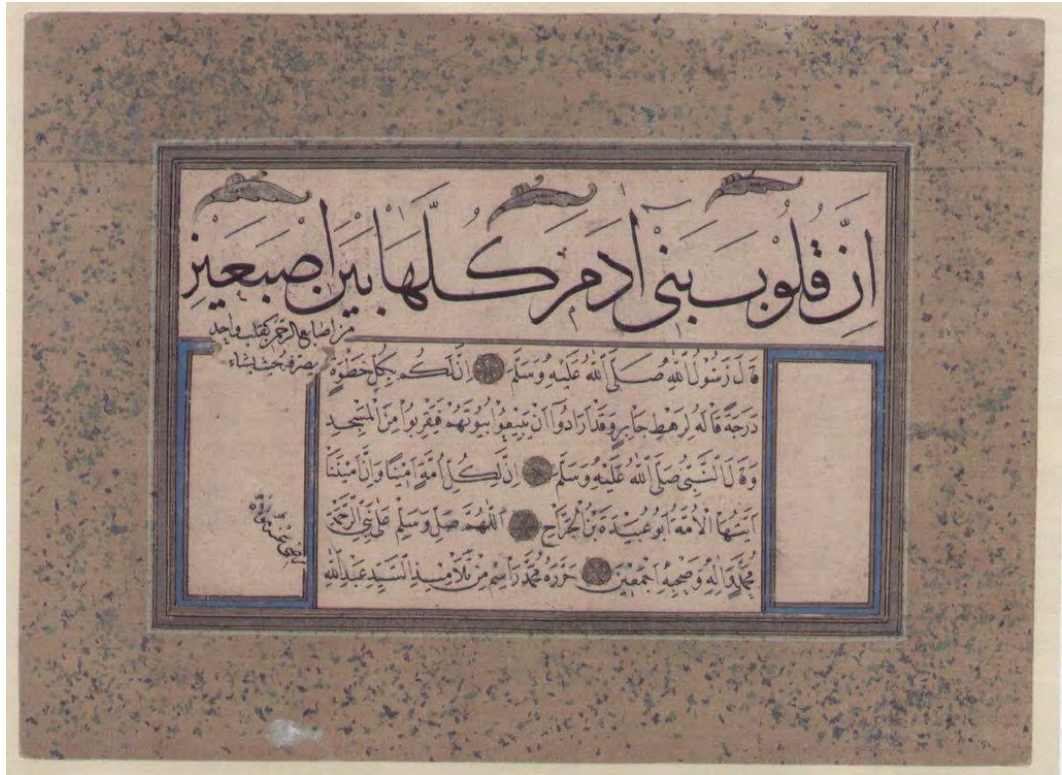 اِنَّ قُلُوْبَ بَنِیْ اٰدَمَ كُلَّهَا بَيْنَ اِصْبَعَيْنِ
من اصابع الرحمن كقلب واحد
يصرفه حيث يشاء
قَالَ رَسُوْلُ اللّٰهِ صَلَّی اللّٰهُ عَلَيْهِ وَسَلَّمَ اِنَّ لَكُمْ بِكُلِّ خَطْوَةٍ
دَرَجَةً قَالَهُ لِرَهْطِ جَابِرٍ وَقَدْ اَرَادُوْا اَنْ يَبِيْعُوْا بُيُوْتَهُمْ فَيَقْرُبُوْا مِنَ الْمَسْجِدِ
وَقَالَ النَّبِیُّ صَلَّی اللّٰهُ عَلَيْهِ وَسَلَّمَ اِنَّ لِكُلِّ اُمَّةٍ اَمِيْنًا وَاِنَّ اَمِيْنَنَا
اَيَّتُهَا الْاُمَّةُ اَبُو عُبَيْدَةَ بْنُ الْجَرَّاحِ اَللّٰهُمَّ صَلِّ وَسَلِّمْ عَلٰی نَبِیِّ الرَّحْمَةِ
مُحَمَّدٍ وَاٰلِهِ وَصَحْبِهِ اَجْمَعِيْنَ حَرَّرَهُ مُحَمَّد رَاسِم مِنْ تَلَامِيْذِ السَّيِّدِ عَبْدِ اللّٰهِ